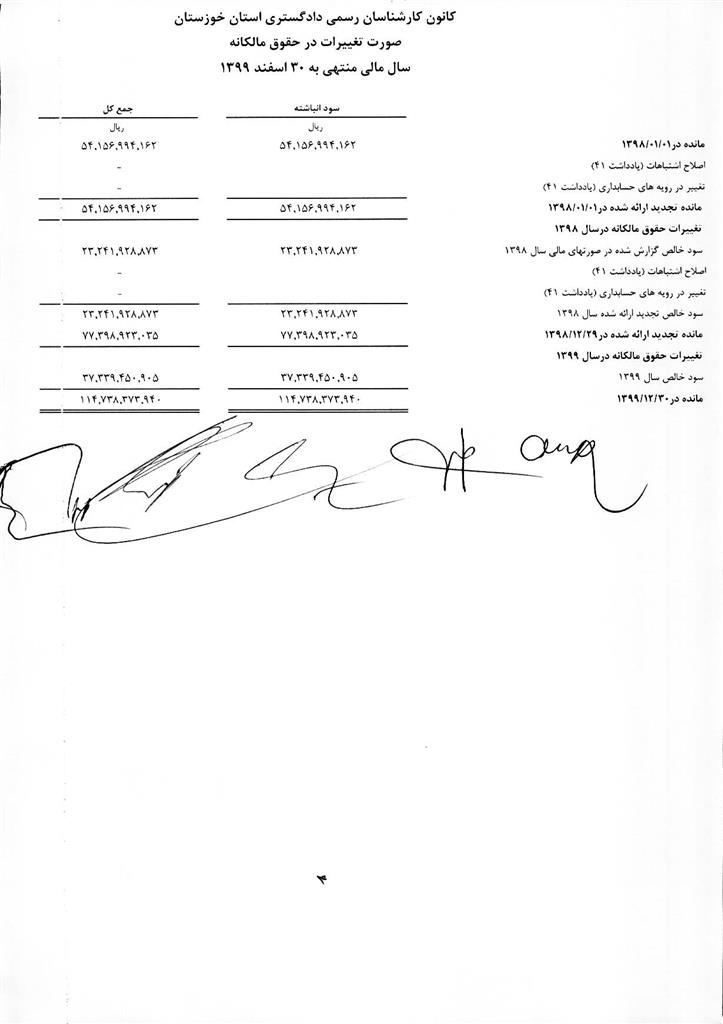 کانون کارشناسان رسمی دادگستری استان خوزستان
صورت تغییرات در حقوق مالکانه
سال مالی منتهی به ۳۰ اسفند ۱۳۹۹
سود انباشته جمع کل
ریال ریال
مانده در۱۳۹۸/۰۱/۰۱ ۵۴,۱۵۶,۹۹۴,۱۶۲ ۵۴,۱۵۶,۹۹۴,۱۶۲
اصلاح اشتباهات (یادداشت ۴۱) -
تغییر در رویه های حسابداری (یادداشت ۴۱) -
مانده تجدید ارائه شده در۱۳۹۸/۰۱/۰۱ ۵۴,۱۵۶,۹۹۴,۱۶۲ ۵۴,۱۵۶,۹۹۴,۱۶۲
تغییرات حقوق مالکانه درسال ۱۳۹۸
سود خالص گزارش شده در صورتهای مالی سال ۱۳۹۸ ۲۳,۲۴۱,۹۲۸,۸۷۳ ۲۳,۲۴۱,۹۲۸,۸۷۳
اصلاح اشتباهات (یادداشت ۴۱) -
تغییر در رویه های حسابداری (یادداشت ۴۱) -
سود خالص تجدید ارائه شده سال ۱۳۹۸ ۲۳,۲۴۱,۹۲۸,۸۷۳ ۲۳,۲۴۱,۹۲۸,۸۷۳
مانده تجدید ارائه شده در۱۳۹۸/۱۲/۲۹ ۷۷,۳۹۸,۹۲۳,۰۳۵ ۷۷,۳۹۸,۹۲۳,۰۳۵
تغییرات حقوق مالکانه درسال ۱۳۹۹
سود خالص سال ۱۳۹۹ ۳۷,۳۳۹,۴۵۰,۹۰۵ ۳۷,۳۳۹,۴۵۰,۹۰۵
مانده در۱۳۹۹/۱۲/۳۰ ۱۱۴,۷۳۸,۳۷۳,۹۴۰ ۱۱۴,۷۳۸,۳۷۳,۹۴۰
۴